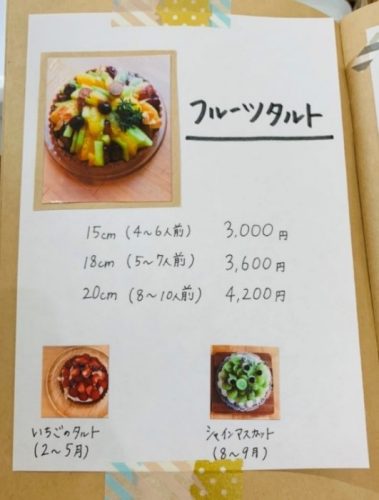 フルーツタルト
15cm (4〜6人前) 3,000円
18cm (5〜7人前) 3,600円
20cm (8〜10人前) 4,200円
いちごのタルト
(2〜5月)
シャインマスカット
(8〜9月)